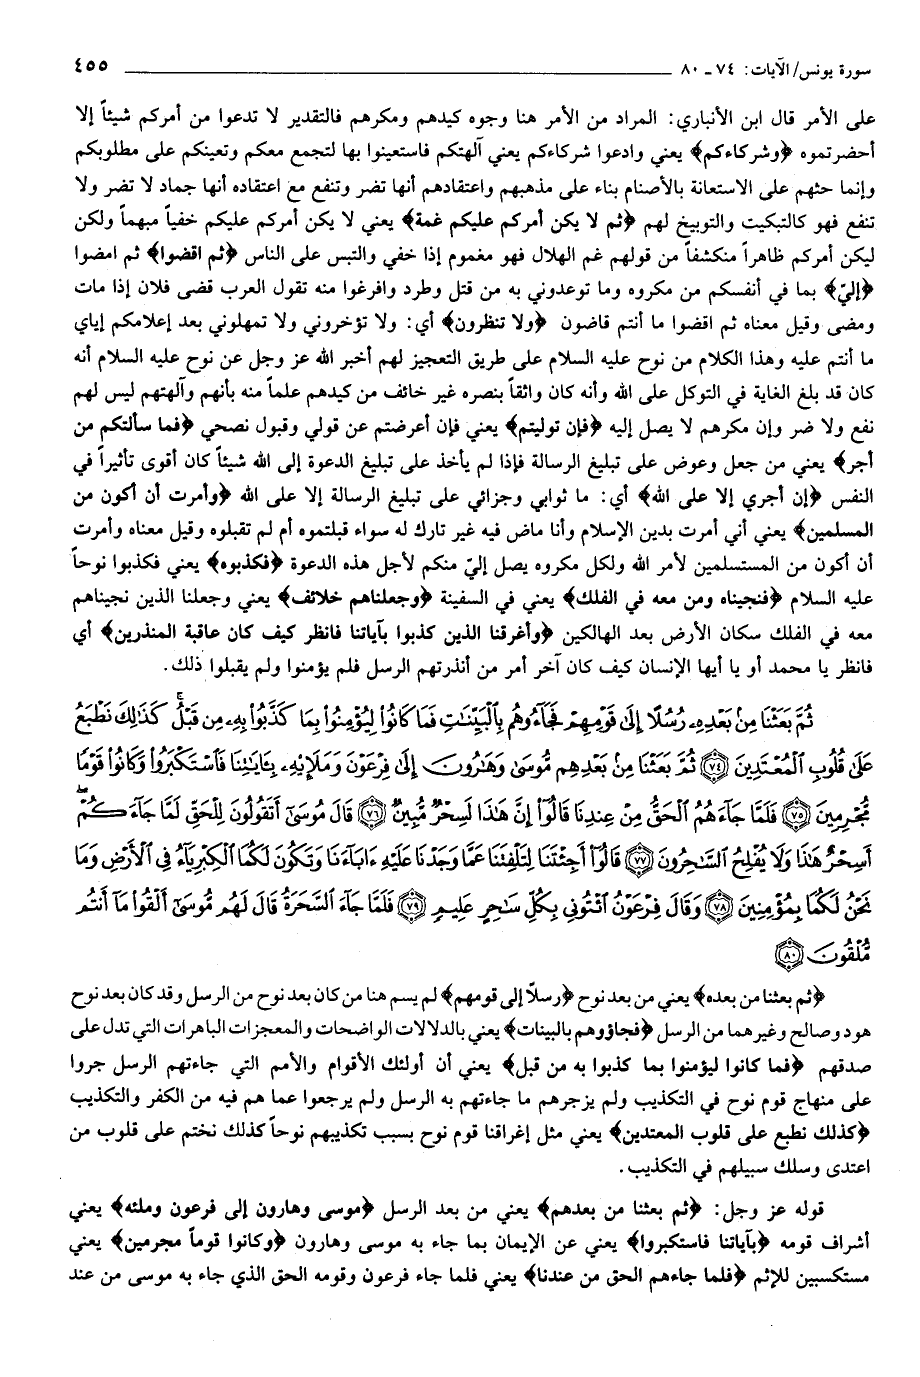 سورة يونس/ الآيات: ٧٤ ـ ٨٠ ٤٥٥
على الأمر قال ابن الأنباري: المراد من الأمر هنا وجوه كيدهم ومكرهم فالتقدير لا تدعوا من أمركم شيئاً إلا
أحضرتموه ﴿وشركاءكم﴾ يعني وادعوا شركاءكم يعني آلهتكم فاستعينوا بها لتجمع معكم وتعينكم على مطلوبكم
وإنما حثهم على الاستعانة بالأصنام بناء على مذهبهم واعتقادهم أنها تضر وتنفع مع اعتقاده أنها جماد لا تضر ولا
تنفع فهو كالتبكيت والتوبيخ لهم ﴿ثم لا يكن أمركم عليكم غمة﴾ يعني لا يكن أمركم عليكم خفياً مبهماً ولكن
ليكن أمركم ظاهراً منكشفاً من قولهم غم الهلال فهو مغموم إذا خفي والتبس على الناس ﴿ثم اقضوا﴾ ثم امضوا
﴿إليّ﴾ بما في أنفسكم من مكروه وما توعدوني به من قتل وطرد وافرغوا منه تقول العرب قضى فلان إذا مات
ومضى وقيل معناه ثم اقضوا ما أنتم قاضون ﴿ولا تنظرون﴾ أي: ولا تؤخروني ولا تمهلوني بعد إعلامكم إياي
ما أنتم عليه وهذا الكلام من نوح عليه السلام على طريق التعجيز لهم أخبر الله عز وجل عن نوح عليه السلام أنه
كان قد بلغ الغاية في التوكل على الله وأنه كان واثقاً بنصره غير خائف من كيدهم علماً منه بأنهم وآلهتهم ليس لهم
نفع ولا ضر وإن مكرهم لا يصل إليه ﴿فإن توليتم﴾ يعني فإن أعرضتم عن قولي وقبول نصحي ﴿فما سألتكم من
أجر﴾ يعني من جعل وعوض على تبليغ الرسالة فإذا لم يأخذ على تبليغ الدعوة إلى الله شيئاً كان أقوى تأثيراً في
النفس ﴿إن أجري إلا على الله﴾ أي: ما ثوابي وجزائي على تبليغ الرسالة إلا على الله ﴿وأمرت أن أكون من
المسلمين﴾ يعني أني أمرت بدين الإسلام وأنا ماض فيه غير تارك له سواء قبلتموه أم لم تقبلوه وقيل معناه وأمرت
أن أكون من المستسلمين لأمر الله ولكل مكروه يصل إليّ منكم لأجل هذه الدعوة ﴿فكذبوه﴾ يعني فكذبوا نوحاً
عليه السلام ﴿فنجيناه ومن معه في الفلك﴾ يعني في السفينة ﴿وجعلناهم خلائف﴾ يعني وجعلنا الذين نجيناهم
معه في الفلك سكان الأرض بعد الهالكين ﴿وأغرقنا الذين كذبوا بآياتنا فانظر كيف كان عاقبة المنذرين﴾ أي
فانظر يا محمد أو يا أيها الإنسان كيف كان آخر أمر من أنذرتهم الرسل فلم يؤمنوا ولم يقبلوا ذلك.
ثُمَّ بَعَثْنَا مِنْ بَعْدِهِ رُسُلًا إِلَى قَوْمِهِمْ فَجَاءُوهُم بِالْبَيِّنَاتِ فَمَا كَانُوا لِيُؤْمِنُوا بِمَا كَذَّبُوا بِهِ مِن قَبْلُ كَذَلِكَ نَطْبَعُ
عَلَى قُلُوبِ الْمُعْتَدِينَ ﴿٧٤﴾ ثُمَّ بَعَثْنَا مِنْ بَعْدِهِم مُّوسَى وَهَارُونَ إِلَى فِرْعَوْنَ وَمَلَإِيْهِ بِآيَاتِنَا فَاسْتَكْبَرُوا وَكَانُوا قَوْمًا
مُّجْرِمِينَ ﴿٧٥﴾ فَلَمَّا جَاءَهُمُ الْحَقُّ مِنْ عِندِنَا قَالُوا إِنَّ هَذَا لَسِحْرٌ مُّبِينٌ ﴿٧٦﴾ قَالَ مُوسَى أَتَقُولُونَ لِلْحَقِّ لَمَّا جَاءَكُمْ
أَسِحْرٌ هَذَا وَلَا يُفْلِحُ السَّاحِرُونَ ﴿٧٧﴾ قَالُوا أَجِئْتَنَا لِتَلْفِتَنَا عَمَّا وَجَدْنَا عَلَيْهِ ءَابَاءَنَا وَتَكُونَ لَكُمَا الْكِبْرِيَاءُ فِي الْأَرْضِ وَمَا
نَحْنُ لَكُمَا بِمُؤْمِنِينَ ﴿٧٨﴾ وَقَالَ فِرْعَوْنُ ائْتُونِي بِكُلِّ سَاحِرٍ عَلِيمٍ ﴿٧٩﴾ فَلَمَّا جَاءَ السَّحَرَةُ قَالَ لَهُم مُّوسَى أَلْقُوا مَا أَنتُم
مُّلْقُونَ ﴿٨٠﴾
﴿ثم بعثنا من بعده﴾ يعني من بعد نوح ﴿رسلاً إلى قومهم﴾ لم يسم هنا من كان بعد نوح من الرسل وقد كان بعد نوح
هود وصالح وغيرهما من الرسل ﴿فجاؤوهم بالبينات﴾ يعني بالدلالات الواضحات والمعجزات الباهرات التي تدل على
صدقهم ﴿فما كانوا ليؤمنوا بما كذبوا به من قبل﴾ يعني أن أولئك الأقوام والأمم التي جاءتهم الرسل جروا
على منهاج قوم نوح في التكذيب ولم يزجرهم ما جاءتهم به الرسل ولم يرجعوا عما هم فيه من الكفر والتكذيب
﴿كذلك نطبع على قلوب المعتدين﴾ يعني مثل إغراقنا قوم نوح بسبب تكذيبهم نوحاً كذلك نختم على قلوب من
اعتدى وسلك سبيلهم في التكذيب.
قوله عز وجل: ﴿ثم بعثنا من بعدهم﴾ يعني من بعد الرسل ﴿موسى وهارون إلى فرعون وملئه﴾ يعني
أشراف قومه ﴿بآياتنا فاستكبروا﴾ يعني عن الإيمان بما جاء به موسى وهارون ﴿وكانوا قوماً مجرمين﴾ يعني
مستكسبين للإثم ﴿فلما جاءهم الحق من عندنا﴾ يعني فلما جاء فرعون وقومه الحق الذي جاء به موسى من عند